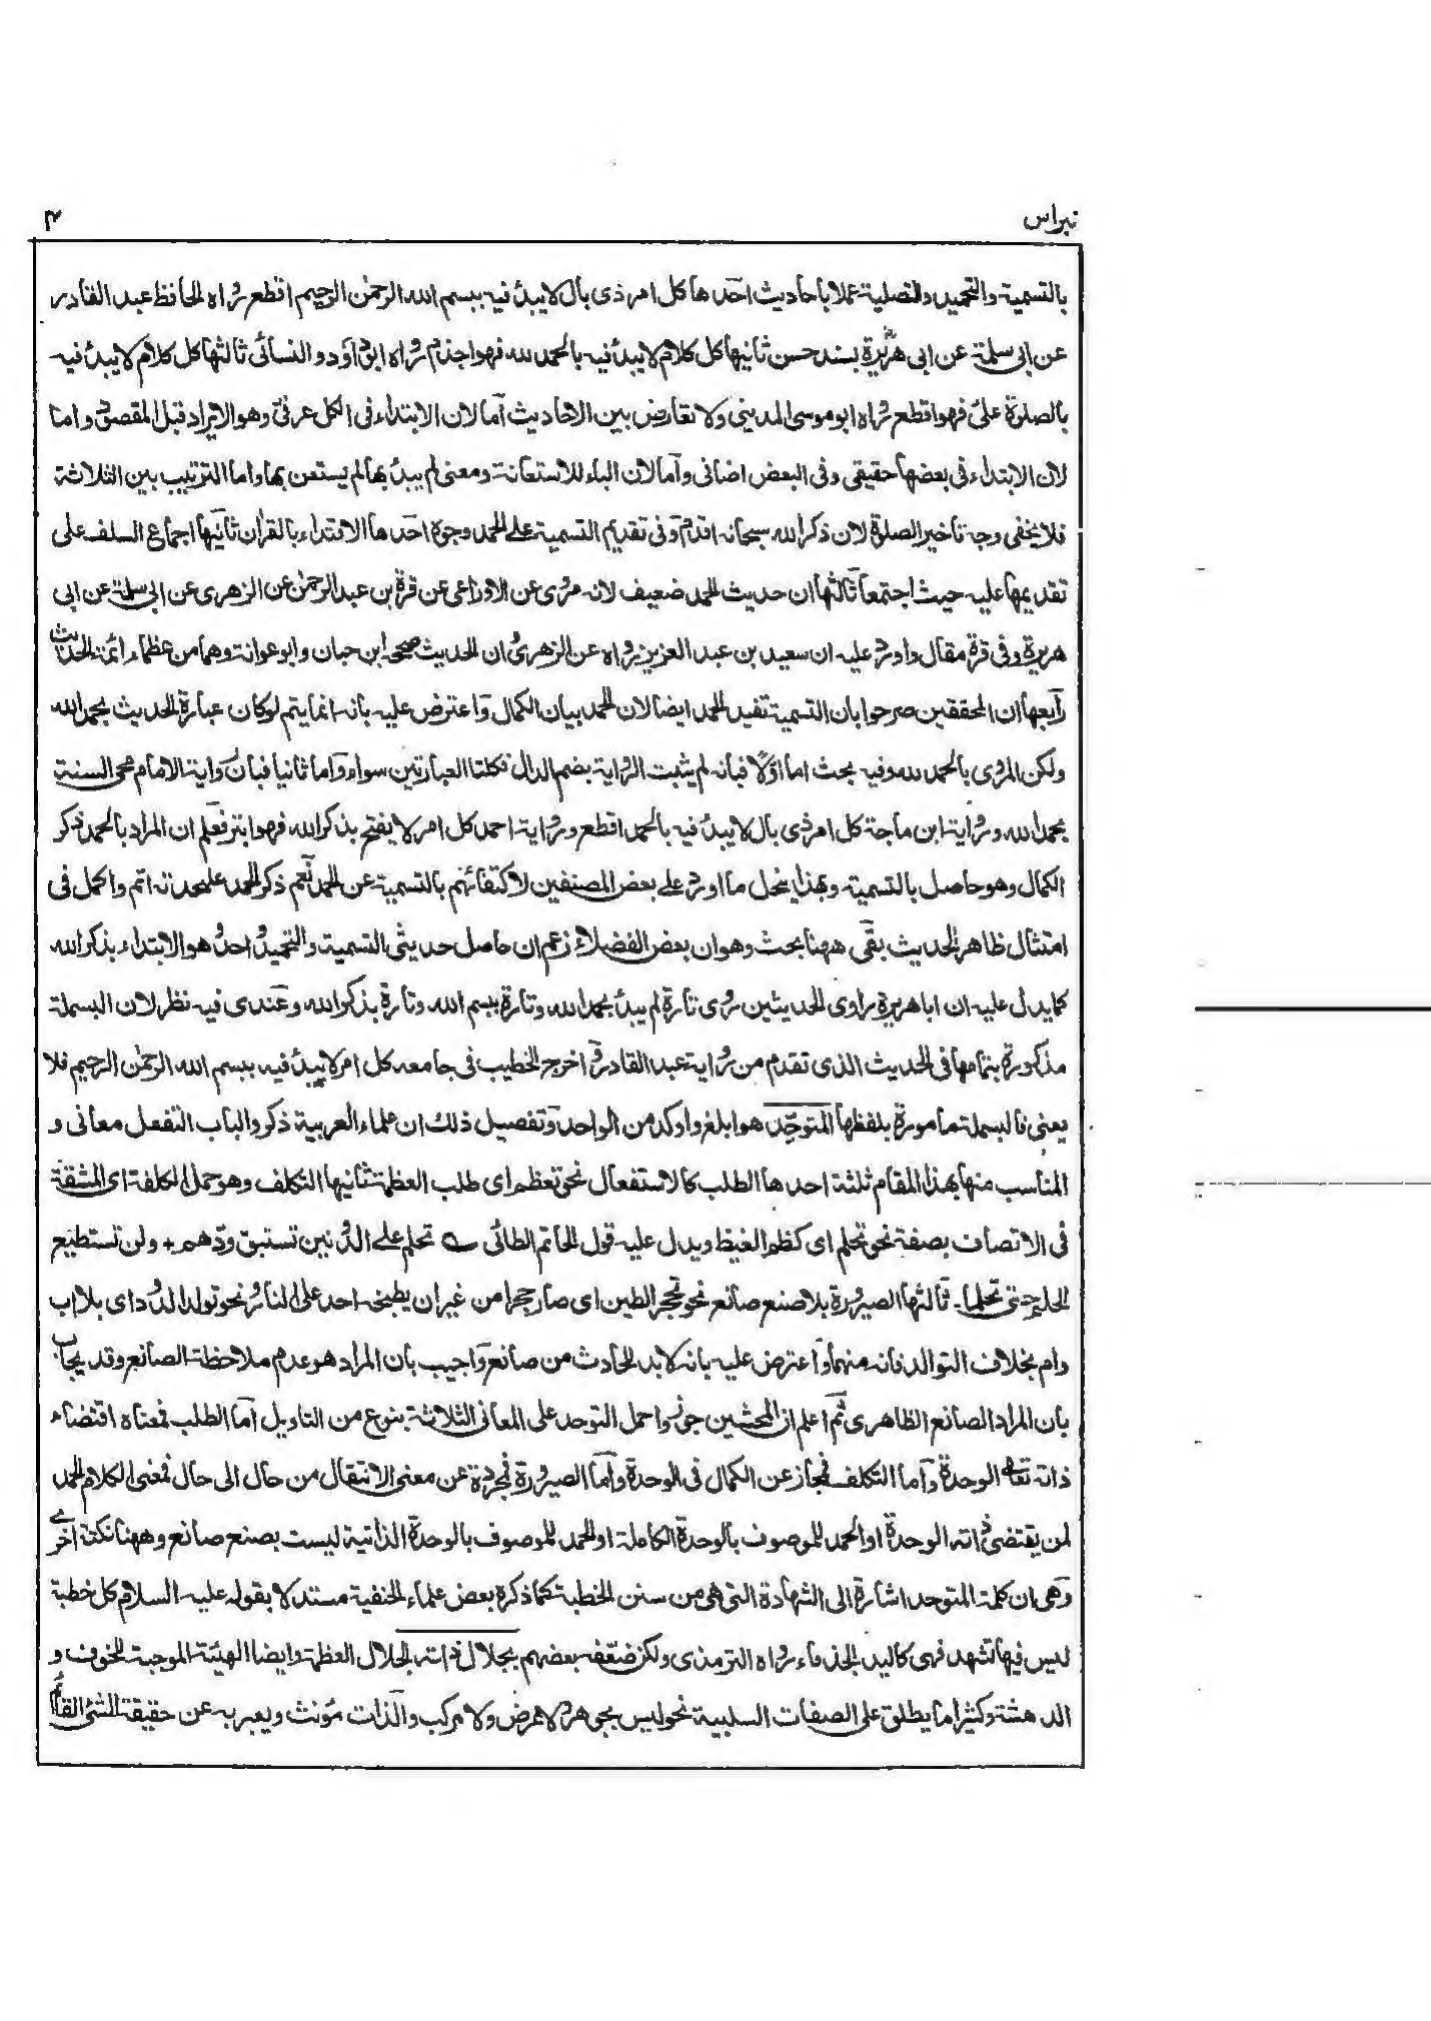 نبراس
٣
بالتسمية والتحميد والتصلية عملا باحاديث احدها كل امر ذى بال لا يبدأ فيه ببسم الله الرحمن الرحيم اقطع رواه الحافظ عبد القادر
عن ابى سلمة عن ابى هريرة بسند حسن ثانيها كل كلام لا يبدأ فيه بالحمد لله فهو اجذم رواه ابو داود و النسائى ثالثها كل كلام لا يبدأ فيه
بالصلوة علىّ فهو اقطع رواه ابو موسى المدينى ولا تعارض بين الاحاديث اما لان الابتداء فى الكل عرفى وهو الايراد قبل المقصود واما
لان الابتداء فى بعضها حقيقى وفى البعض اضافى واما لان الباء للاستعانة ومعنى لم يبدأ بها لم يستعن بها واما الترتيب بين الثلاثة
فلا يخفى وجه تاخير الصلوة لان ذكر الله سبحانه اقدم وفى تقديم التسمية على الحمد وجوه احدها الاقتداء بالقرآن ثانيها اجماع السلف على
تقديمها عليه حيث اجتمعا ثالثها ان حديث الحمد ضعيف لانه مروى عن الاوزاعى عن قرة بن عبد الرحمن عن الزهرى عن ابى سلمة عن ابى
هريرة وفى قرة مقال واورد عليه ان سعيد بن عبد العزيز رواه عن الزهرى وان الحديث صححه ابن حبان وابو عوانة وهما من عظماء ائمة الحديث
رابعها ان المحققين صرحوا بان التسمية تفيد الحمد ايضا لان الحمد بيان الكمال واعترض عليه بانه انما يتم لو كان عبارة الحديث بحمد الله
ولكن المروى بالحمد لله وفيه بحث اما اولا فبانه لم يثبت الرواية بضم الدال فكلتا العبارتين سواء واما ثانيا فبان رواية الامام محى السنة
بحمد الله ورواية ابن ماجة كل امر ذى بال لا يبدأ فيه بالحمد اقطع ورواية احمد كل امر لا يفتح بذكر الله فهو ابتر فعلم ان المراد بالحمد ذكر
الكمال وهو حاصل بالتسمية وبهذا ينحل ما اورد على بعض المصنفين لاكتفائهم بالتسمية عن الحمد نعم ذكر الحمد على حدته اتم واكمل فى
امتثال ظاهر الحديث بقى ههنا بحث وهو ان بعض الفضلاء زعم ان حاصل حديثى التسمية والتحميد واحد وهو الابتداء بذكر الله
كما يدل عليه ان ابا هريرة راوى الحديثين روى تارة لم يبدأ بحمد الله وتارة ببسم الله وتارة بذكر الله وعندى فيه نظر لان البسملة
مذكورة بتمامها فى الحديث الذى تقدم من رواية عبد القادر وقد اخرج الخطيب فى جامعه كل امر لا يبدأ فيه ببسم الله الرحمن الرحيم فلا
يعنى فالبسملة مامورة بلفظها المتوحّد هو ابلغ واوكد من الواحد وتفصيل ذلك ان علماء العربية ذكروا لباب التفعل معانى و
المناسب منها بهذا المقام ثلثة احدها الطلب كالاستفعال نحو تعظم اى طلب العظمة ثانيها التكلف وهو حمل الكلفة اى المشقة
فى الاتصاف بصفة نحو تحلم اى كظم الغيظ ويدل عليه قول الحاتم الطائى ؎ تحلم على الادنين تستبق ودّهم + ولن تستطيع
الحلم حتى تحلما۔ ثالثها الصيرورة بلا صنع صانع نحو تحجر الطين اى صار حجرا من غير ان يطبخه احد على النار ونحو تولد الدود اى بلا اب
وام بخلاف التوالد فانه منهما واعترض عليه بانه لا بد للحادث من صانع واجيب بان المراد هو عدم ملاحظة الصانع وقد يجاب
بان المراد الصانع الظاهرى ثم اعلم ان المحشين جوزوا حمل التوحد على المعانى الثلاثة بنوع من التاويل اما الطلب فمعناه اقتضاء
ذاته تعالى الوحدة واما التكلف فمجاز عن الكمال فى الوحدة واما الصيرورة فمجردة عن معنى الانتقال من حال الى حال فمعنى الكلام الحمد
لمن يقتضى ذاته الوحدة او الحمد للموصوف بالوحدة الكاملة او الحمد للموصوف بالوحدة الذاتية ليست بصنع صانع وههنا نكتة اخرى
وهى ان كلمة المتوحد اشارة الى الشهادة التى هى من سنن الخطبة كما ذكره بعض علماء الحنفية مستدلا بقوله عليه السلام كل خطبة
ليس فيها تشهد فهى كاليد الجذماء رواه الترمذى ولكن ضعّفه بعضهم بجلال ذاته الجلال العظمة وايضا الهيئة الموجبة للخوف و
الدهشة وكثيرا ما يطلق على الصفات السلبية نحو ليس بجوهر ولا عرض ولا مركب والذات مؤنث ويعبر به عن حقيقة الشئ القائم